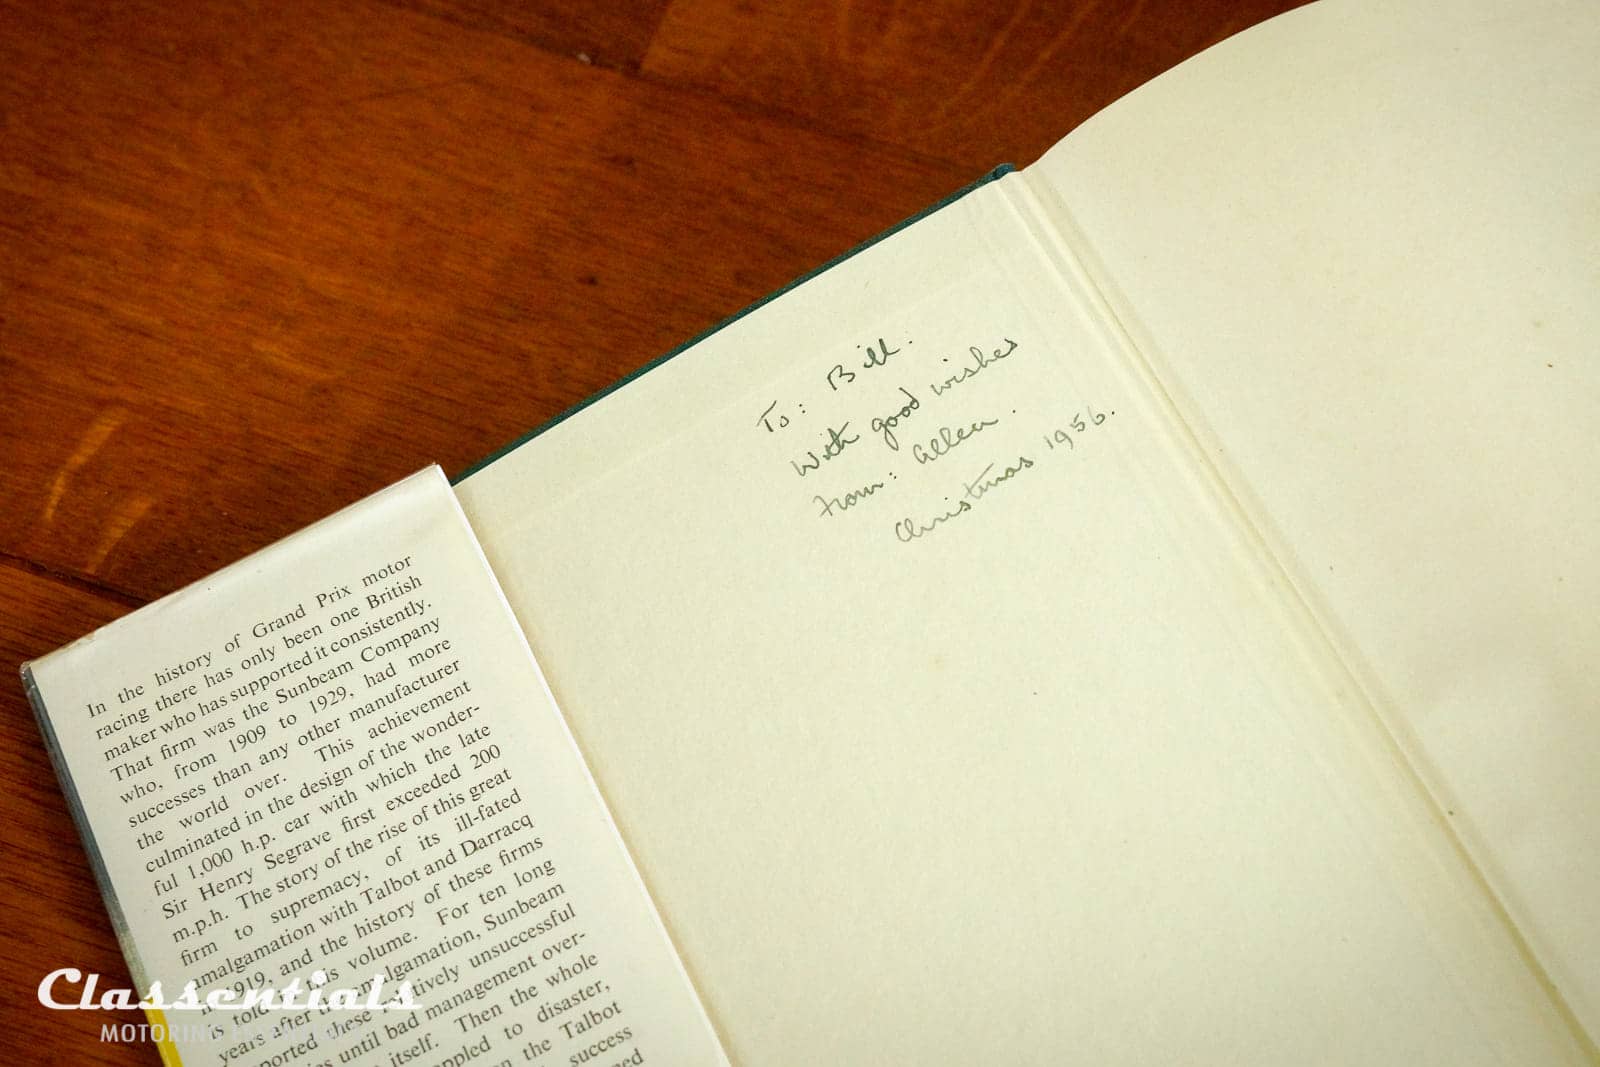 To: Bill.
With good wishes
from: Allen.
Christmas 1956.
In the history of Grand Prix motor
racing there has only been one British
maker who has supported it consistently.
That firm was the Sunbeam Company
who, from 1909 to 1929, had more
successes than any other manufacturer
the world over. This achievement
culminated in the design of the wonder-
ful 1,000 h.p. car with which the late
Sir Henry Segrave first exceeded 200
m.p.h. The story of the rise of this great
firm to supremacy, of its ill-fated
amalgamation with Talbot and Darracq
in 1919, and the history of these firms
is told in this volume. For ten long
years after the amalgamation, Sunbeam
supported these relatively unsuccessful
until bad management over-
itself. Then the whole
to disaster,
the Talbot
success
Classentials
MOTORING